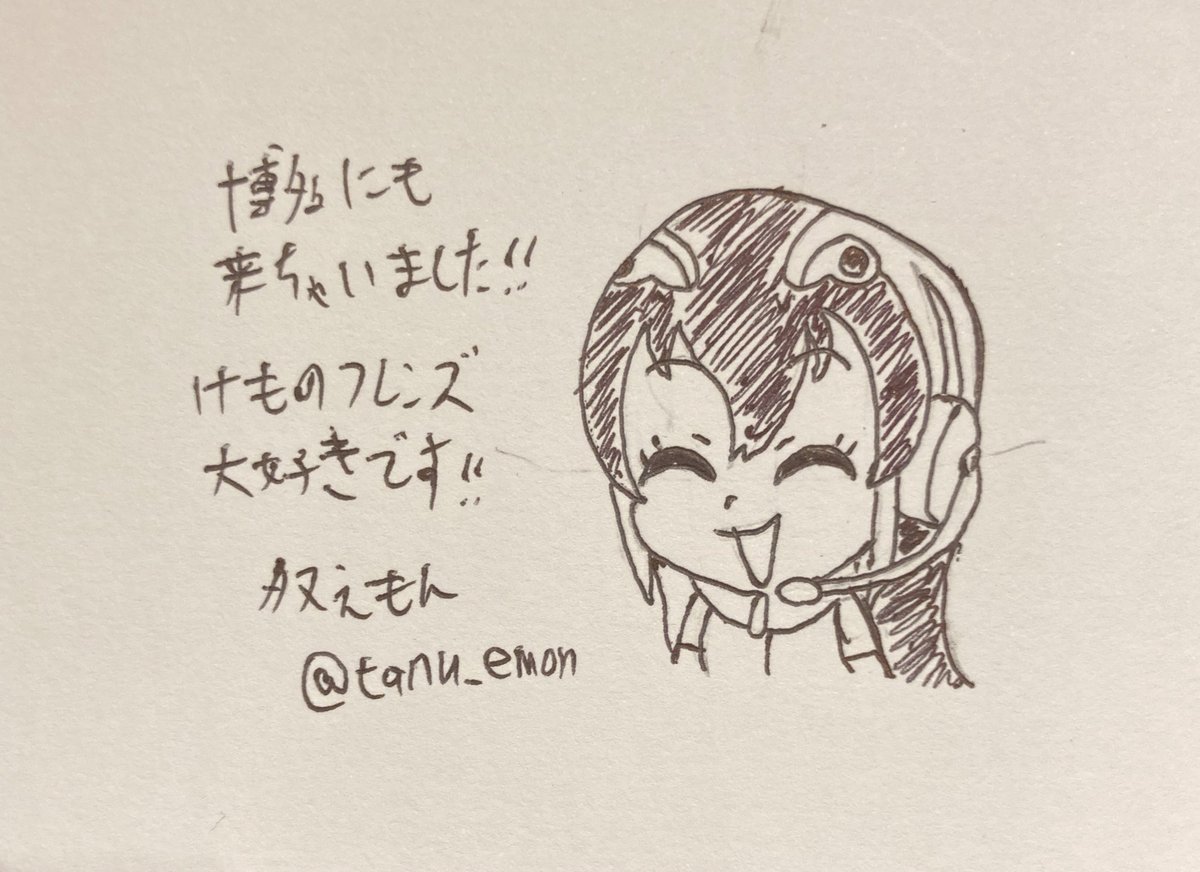 博多にも
来ちゃいました!!
けものフレンズ
大好きです!!
タヌえもん
@tanu_emon